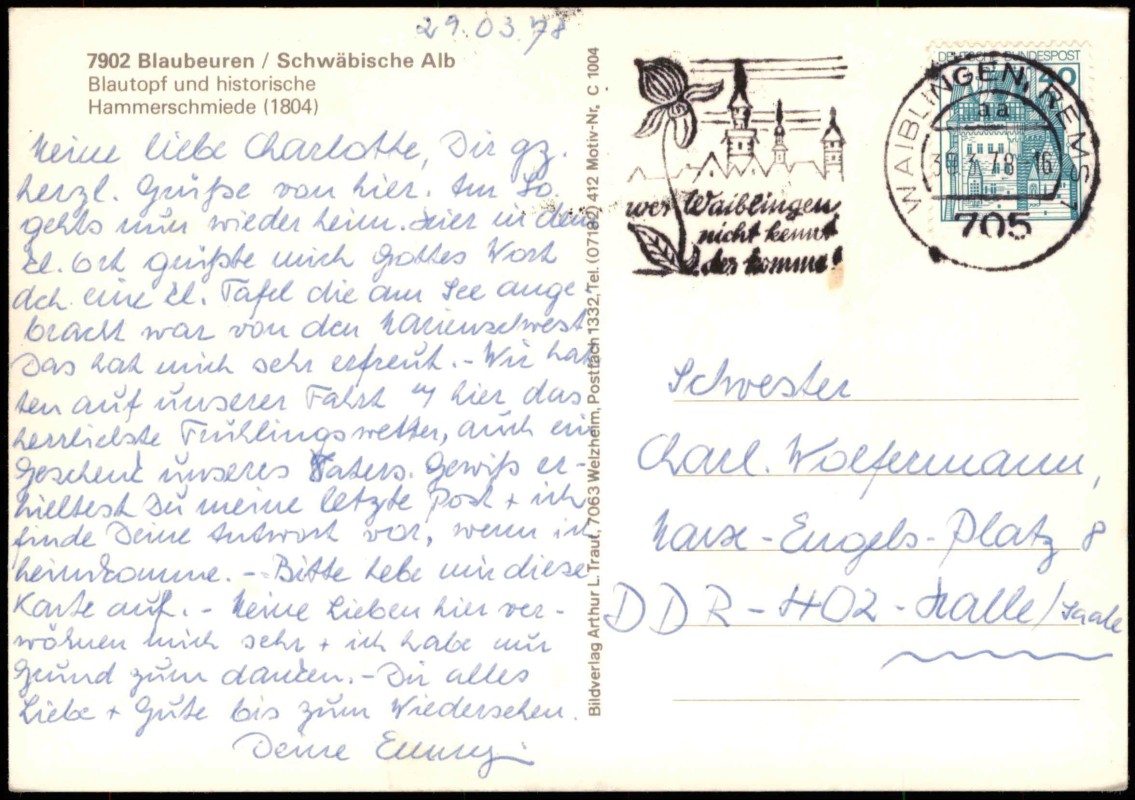 29.03.78
7902 Blaubeuren / Schwäbische Alb
Blautopf und historische
Hammerschmiede (1804)
Meine liebe Charlotte, Dir gz.
herzl. Grüße von hier. Am So.
gehts nun wieder heim. Hier in dem
kl. Ort grüßte mich Gottes Wort
dch. eine kl. Tafel die am See ange
bracht war von den Marienschwest.
Das hat mich sehr erfreut. - Wir hat
ten auf unserer Fahrt u hier das
herrlichste Frühlingswetter, auch ein
Geschenk unseres Vaters. Gewiß er-
hieltest Du meine letzte Post + ich
finde Deine Antwort vor, wenn ich
heimkomme. - Bitte hebe mir diese
Karte auf. - Meine Lieben hier ver-
wöhnen mich sehr + ich habe nur
Grund zum danken. - Dir alles
Liebe + Gute bis zum Wiedersehen.
Deine
Bildverlag Arthur L. Traut, 7063 Welzheim, Postfach 1332, Tel. (07182) 412 Motiv-Nr. C 1004
wer Waiblingen
nicht kennt
der komme!
DEUTSCHE BUNDESPOST
40
WAIBLINGEN, REMS 1
aa
3.78-16
705
Schwester
Charl. Wolfermann,
Marx-Engels-Platz 8
DDR-402-Halle/Saale